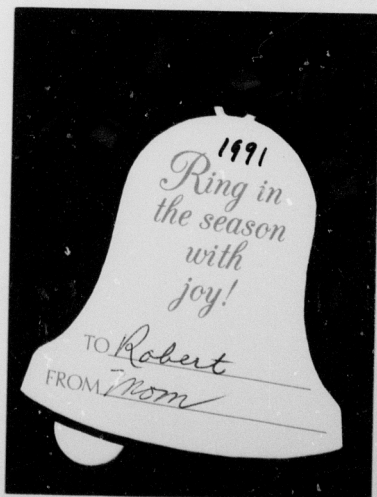 1991
Ring in
the season
with
joy!
TO Robert
FROM Mom